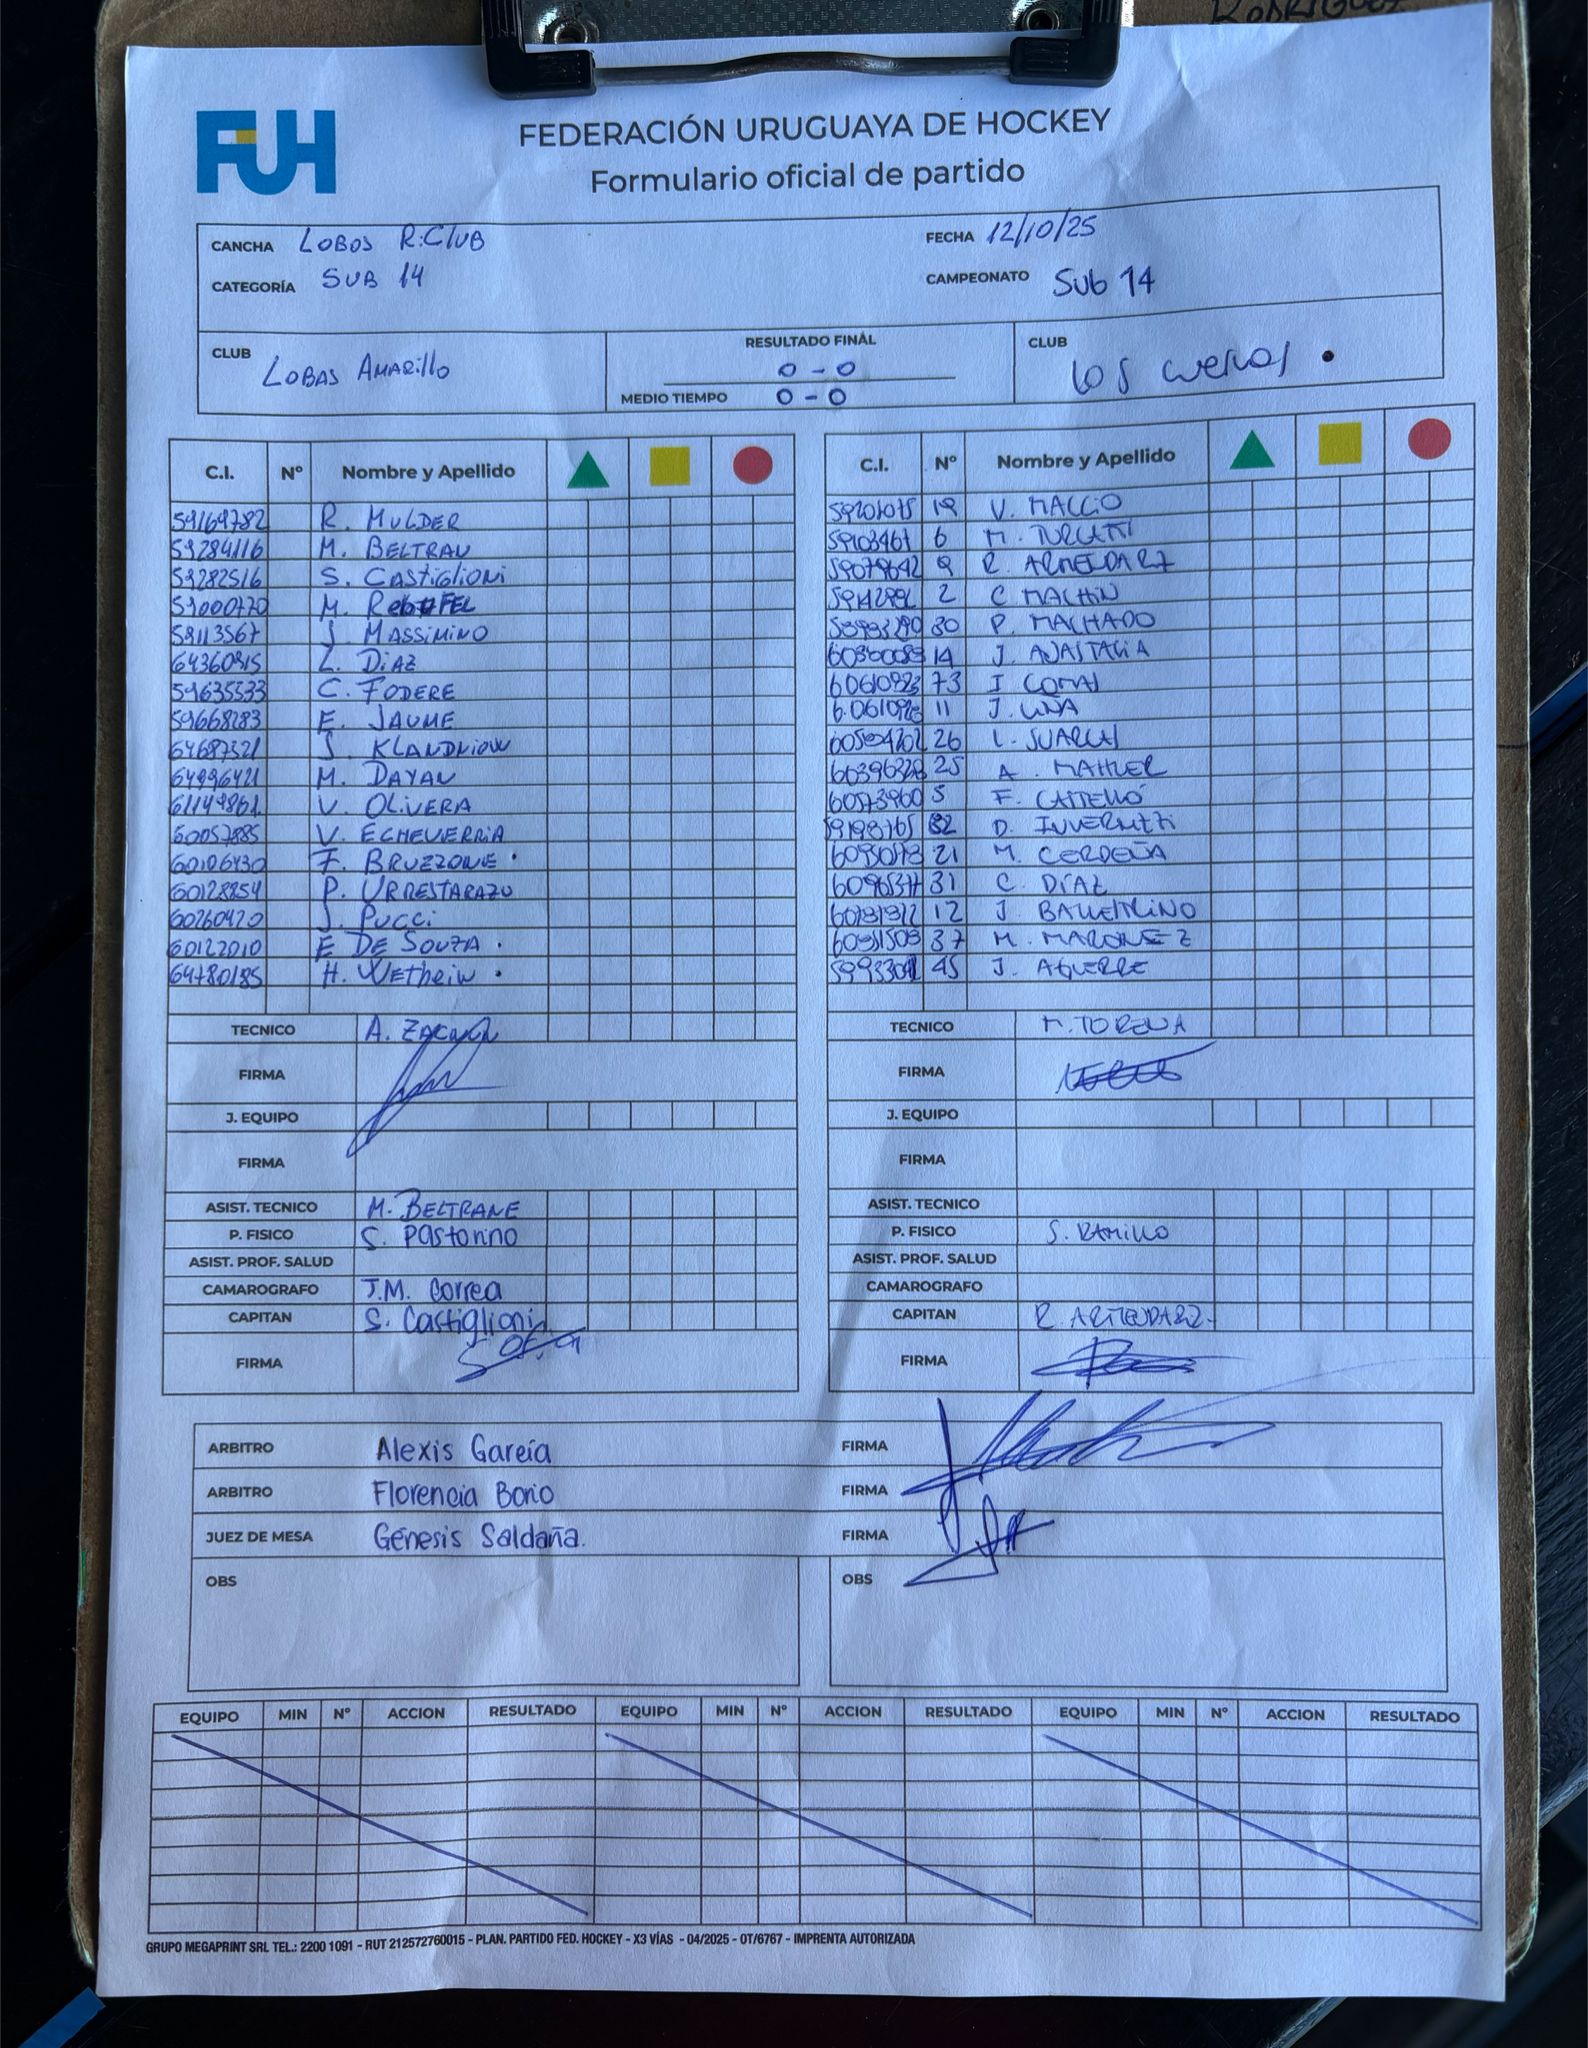 RODRIGUEZ
FUH
FEDERACIÓN URUGUAYA DE HOCKEY
Formulario oficial de partido
CANCHA LOBOS R.CLUB FECHA 12/10/25
CATEGORÍA SUB 14 CAMPEONATO Sub 14
CLUB LOBAS AMARILLO RESULTADO FINAL 0 - 0 CLUB LOS
MEDIO TIEMPO 0 - 0
C.I. Nº Nombre y Apellido C.I. Nº Nombre y Apellido
59169782 R. MULDER 19 V. MACCIO
59284116 M. BELTRAN 59103461 6 M.
59282516 S. CASTIGLIONI 59079642 9 R. ARMENDARZ
59000770 M. 2 C MACHIN
59113567 J. MASSIMINO 30 P. MACHADO
L. DIAZ 14 J. ANASTASIA
59635533 C. FODERE 60610923 73 I COMAS
59668283 F. JAUME 11 J. LINA
64687321 J. 26 L. SUAREZ
64996421 M. DAYAN 60396328 25 A. MAHLER
61149861 V. OLIVERA 60573960 5 F. CASTELLÓ
60057885 V. ECHEVERRIA 32 D. INVERNIZZI
60106430 F. BRUZZONE 21 M. CERDEÑA
60128254 P. URRESTARAZU 31 C. DÍAZ
60260420 J. PUCCI 12 J. BALLESTRINO
60122010 F DE SOUZA 37 M. MARQUEZ
64780185 H. 45 J. AGUERRE
TECNICO A. TECNICO M. TORENA
FIRMA FIRMA
J. EQUIPO J. EQUIPO
FIRMA FIRMA
ASIST. TECNICO M. BELTRANE ASIST. TECNICO
P. FISICO S. Pastorino P. FISICO S. RAMILLO
ASIST. PROF. SALUD ASIST. PROF. SALUD
CAMAROGRAFO J.M. Correa CAMAROGRAFO
CAPITAN S. Castiglioni CAPITAN R. ARMENDARZ
FIRMA FIRMA
ARBITRO Alexis García FIRMA
ARBITRO Florencia Borio FIRMA
JUEZ DE MESA Génesis Saldaña. FIRMA
OBS OBS
EQUIPO MIN Nº ACCION RESULTADO EQUIPO MIN Nº ACCION RESULTADO EQUIPO MIN Nº ACCION RESULTADO
GRUPO MEGAPRINT SRL TEL.: 2200 1091 - RUT 212572760015 - PLAN. PARTIDO FED. HOCKEY - X3 VÍAS - 04/2025 - OT/6767 - IMPRENTA AUTORIZADA